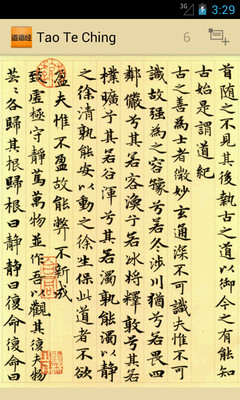 3G 3:29
道德经 Tao Te Ching 6
首隨之不見其後執古之道以御今之有能知
古始是謂道紀
古之善為士者微妙玄通深不可識夫惟不可
識故強為之容豫兮若冬涉川猶兮若畏四
鄰儼兮其若客渙兮若冰將釋敦兮其若
樸曠兮其若谷渾兮其若濁孰能濁以靜
之徐清孰能安以動之徐生保此道者不欲
盈夫惟不盈故能弊不新成
致虛極守靜篤萬物並作吾以觀其復夫物
芸芸各歸其根歸根曰靜靜曰復命復命曰